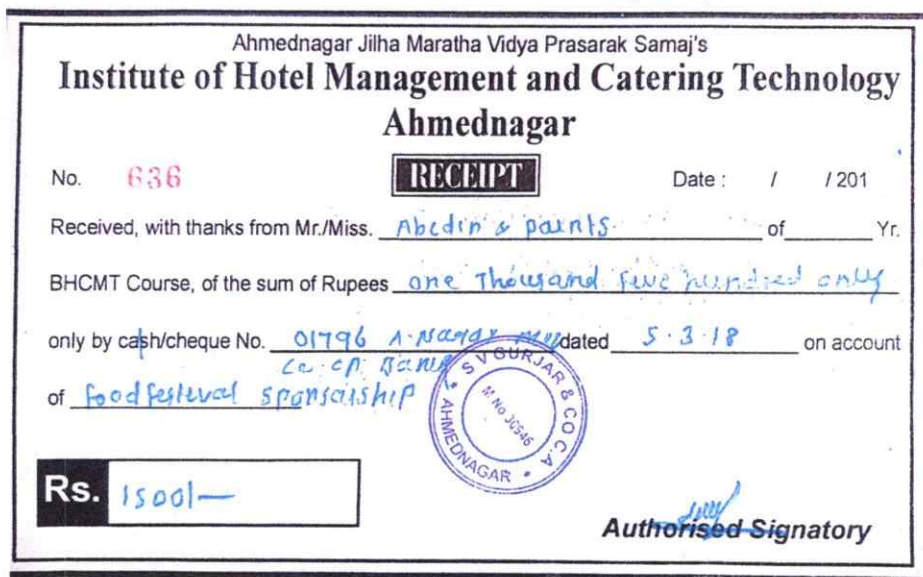 Ahmednagar Jilha Maratha Vidya Prasarak Samaj's
Institute of Hotel Management and Catering Technology
Ahmednagar
No. 636 RECEIPT Date : / / 201
Received, with thanks from Mr./Miss. Abedin's paints of Yr.
BHCMT Course, of the sum of Rupees one Thousand five hundred only
only by cash/cheque No. 01796 A-Nagar dated 5.3.18 on account
Co. op. Bank
of food festival sponsorship
S V GURJAR & CO C.A * AHMEDNAGAR *
M.No
Rs. 1500/-
Authorised Signatory